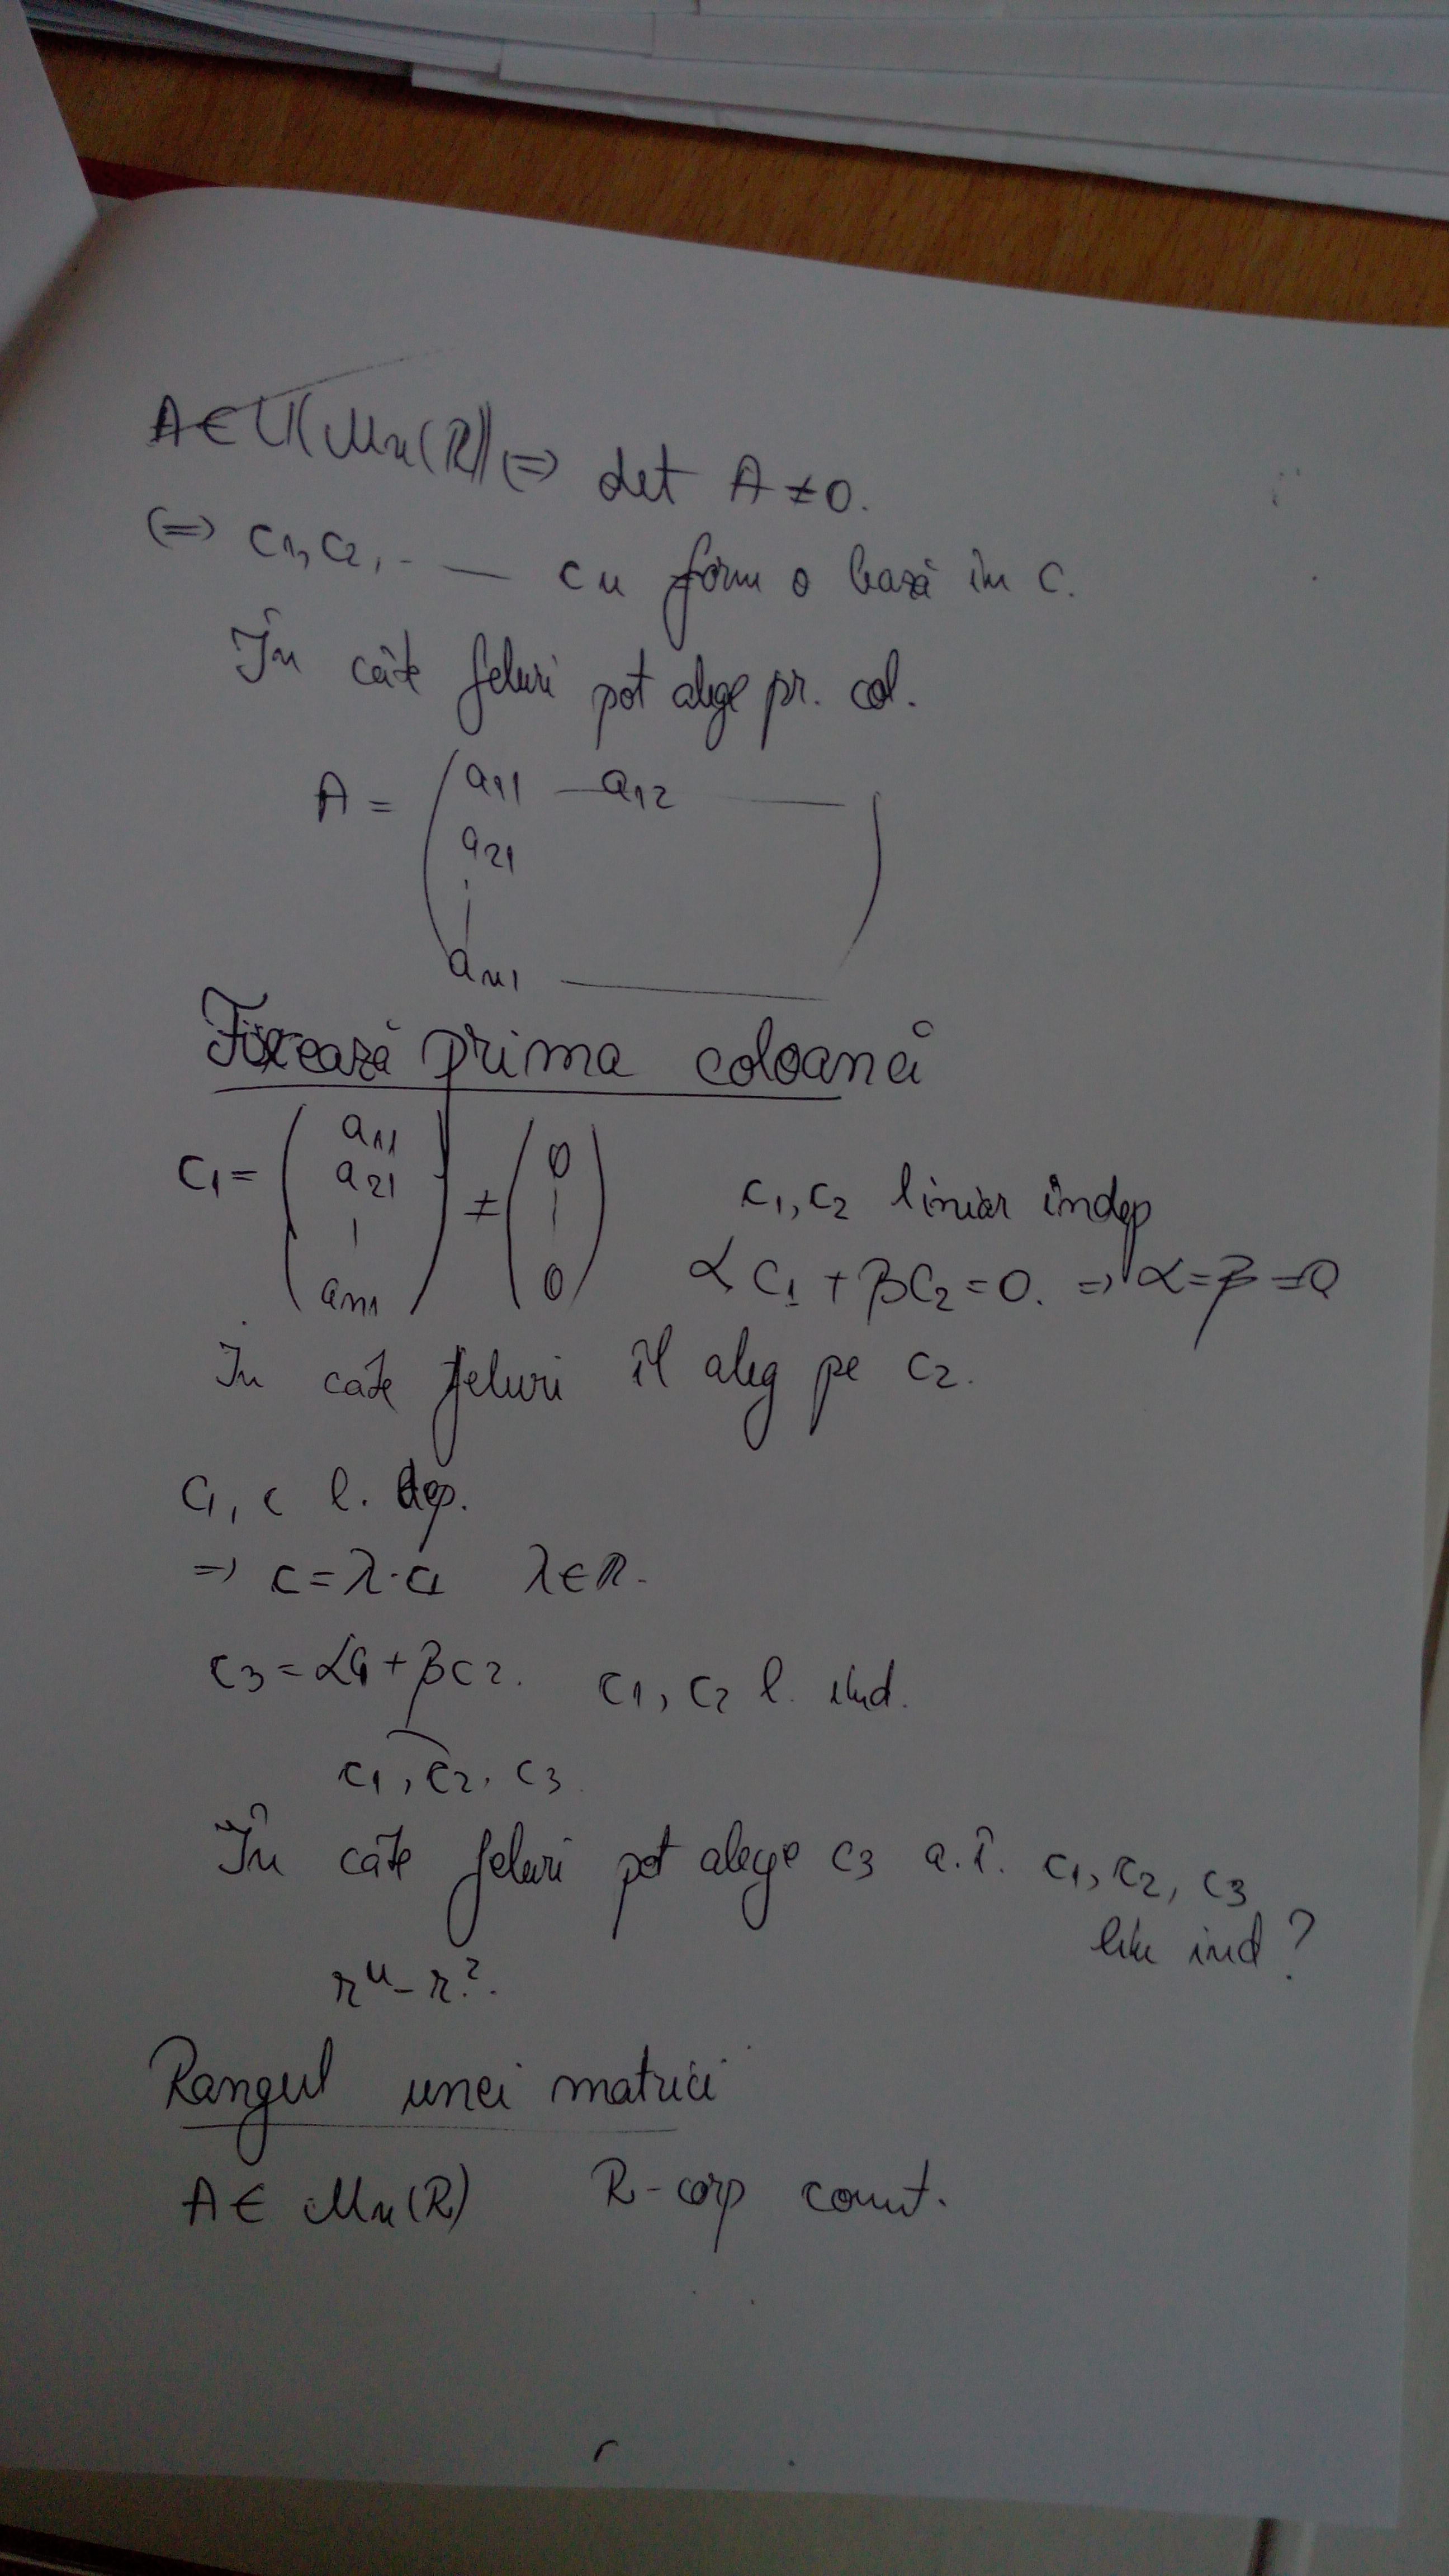 A ∈ U(Mn(R)) (=) det A ≠ 0.
(=) c1, c2, .. — cn form o bază în C.
În câte feluri pot alege pr. col.
A = ( a11 — a12 —
a21
⋮
an1 — )
Fixează prima coloană
c1 = ( a11 a21 | an1 ) ≠ ( 0 | 0 ) c1, c2 liniar indep
α c1 + β c2 = 0. => α = β = 0
În cate feluri îl aleg pe c2.
c1, c l. dep.
=> c = λ · c1 λ ∈ R.
c3 = αc1 + βc2. c1, c2 l. ind.
c1, c2, c3
În câte feluri pot alege c3 a.î. c1, c2, c3
lin ind?
r^n - r^2.
Rangul unei matrici
A ∈ Mn(R) R - corp comut.